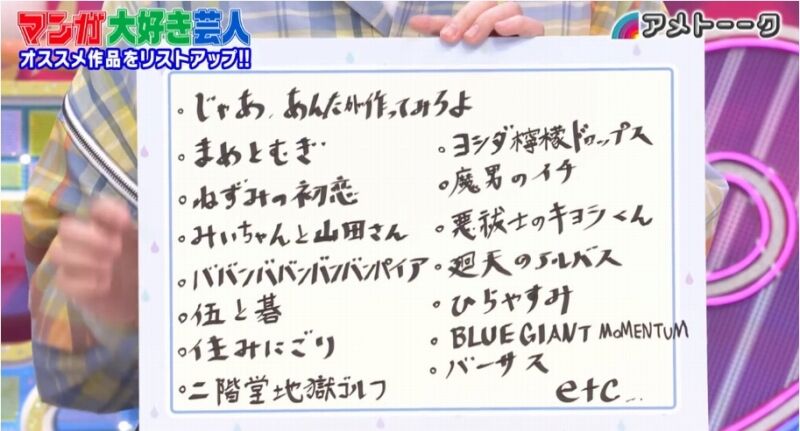 マンガ大好き芸人
オススメ作品をリストアップ!!
アメトーーク
・じゃあ、あんたが作ってみろよ
・まめとむぎ
・ねずみの初恋
・みいちゃんと山田さん
・ババンババンバンバンパイア
・伍と碁
・住みにごり
・二階堂地獄ゴルフ
・ヨシダ檸檬ドロップス
・魔男のイチ
・悪祓士のキヨシくん
・廻天のアルバス
・ひらやすみ
・BLUE GIANT MOMENTUM
・バーサス
etc...